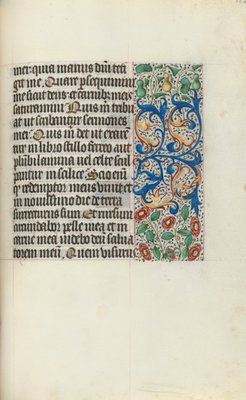 mei: quia manus dnī teti
git me. Quare psequimini
me sicut deus: et carnib meis
saturamini Quis m tribu
at ut scribantur sermones
mei: Quis m det ut exare
tur in libro stillo ferreo aut
plūbi lamina vel celte scul
pantur in scilice. Scio enī
q redemptor meus vivit et
in novissimo die de terra
surrecturus sum Et rursum
circundabor pelle mea et in
carne mea videbo deū salva
torem meū. Quem visurus